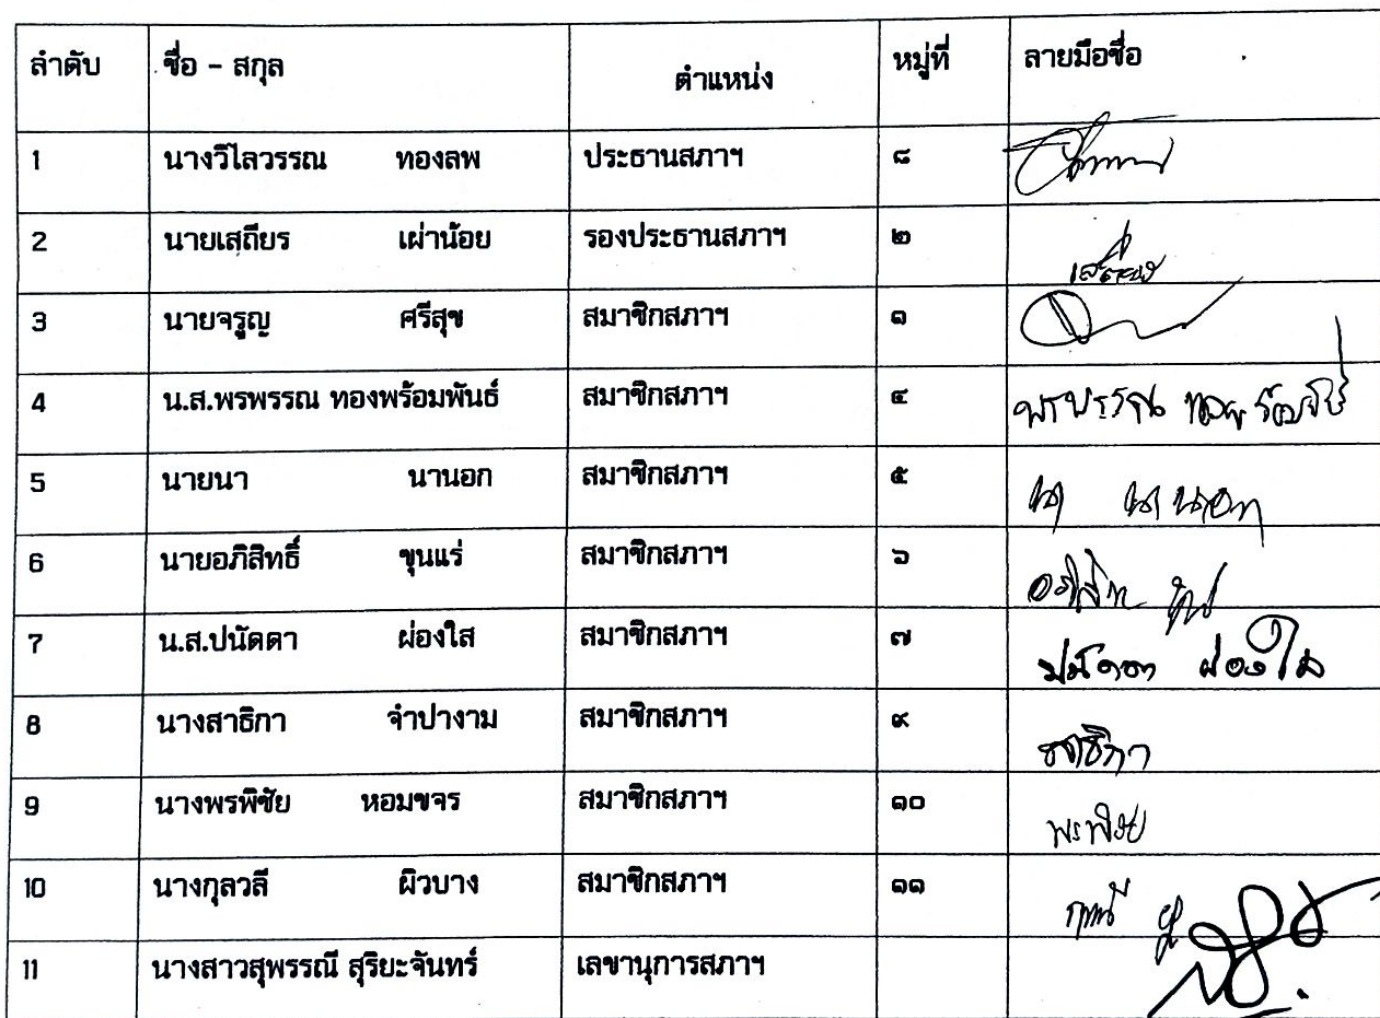 ลำดับ ชื่อ - สกุล ตำแหน่ง หมู่ที่ ลายมือชื่อ
1 นางวิไลวรรณ ทองลพ ประธานสภาฯ ๘
2 นายเสถียร เผ่าน้อย รองประธานสภาฯ ๒ เสถียร
3 นายจรูญ ศรีสุข สมาชิกสภาฯ ๑
4 น.ส.พรพรรณ ทองพร้อมพันธ์ สมาชิกสภาฯ ๔ พรพรรณ ทองพร้อมพันธ์
5 นายนา นานอก สมาชิกสภาฯ ๕ นา นานอก
6 นายอภิสิทธิ์ ขุนแร่ สมาชิกสภาฯ ๖
7 น.ส.ปนัดดา ผ่องใส สมาชิกสภาฯ ๗ ปนัดดา ผ่องใส
8 นางสาธิกา จำปางาม สมาชิกสภาฯ ๙ สาธิกา
9 นางพรพิชัย หอมขจร สมาชิกสภาฯ ๑๐ พรพิชัย
10 นางกุลวลี ผิวบาง สมาชิกสภาฯ ๑๑
11 นางสาวสุพรรณี สุริยะจันทร์ เลขานุการสภาฯ